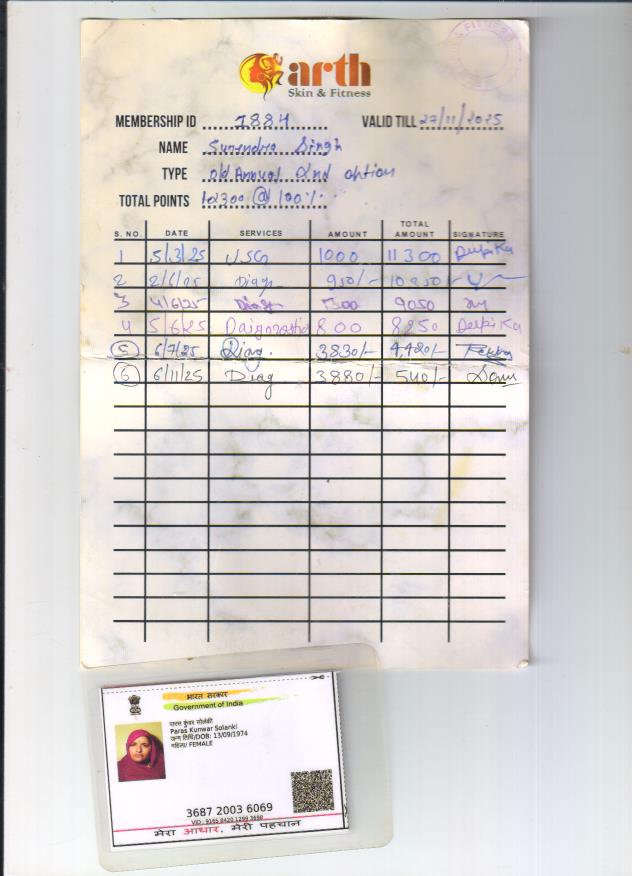 arth
Skin & Fitness
MEMBERSHIP ID 1884 VALID TILL 27/11/2025
NAME Surendra Singh
TYPE old Annual 2nd option
TOTAL POINTS 12300 @ 100%
S. NO. DATE SERVICES AMOUNT TOTAL AMOUNT SIGNATURE
1 5/3/25 USG 1000 11300 Deepika
2 2/6/25 Diagn 950/- 10350
3 4/6/25 Diagn 1300 9050
4 5/6/25 Daignostic 800 8250 Deepika
5 6/7/25 Diag. 3830/- 4420/-
6 6/11/25 Diag 3880/- 540/-
भारत सरकार
Government of India
पारस कुंवर सोलंकी
Paras Kunwar Solanki
जन्म तिथि/DOB: 13/09/1974
महिला/ FEMALE
3687 2003 6069
VID : 9165 8420 1299 3698
मेरा आधार, मेरी पहचान